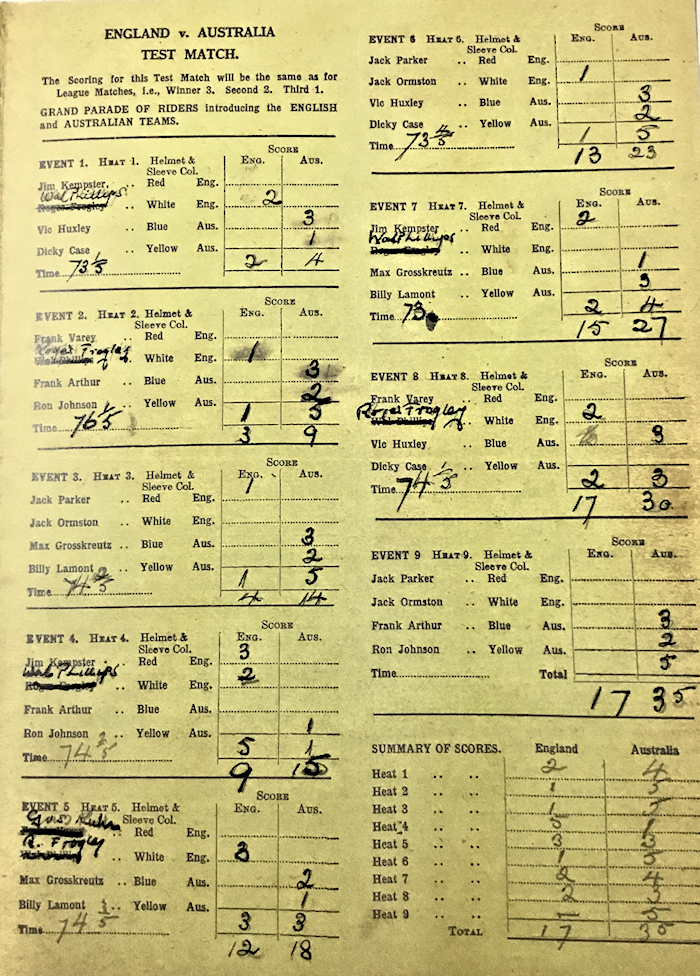 ENGLAND v. AUSTRALIA
TEST MATCH.
The Scoring for this Test Match will be the same as for
League Matches, i.e., Winner 3. Second 2. Third 1.
GRAND PARADE OF RIDERS introducing the ENGLISH
and AUSTRALIAN TEAMS.
SCORE
EVENT 1. HEAT 1. Helmet & Sleeve Col. ENG. AUS.
Jim Kempster .. Red Eng.
Wal Phillips
Roger Frogley .. White Eng. 2
Vic Huxley .. Blue Aus. 3
Dicky Case .. Yellow Aus. 1
Time 73 1/5 2 4
SCORE
EVENT 2. HEAT 2. Helmet & Sleeve Col. ENG. AUS.
Frank Varey .. Red Eng.
Roger Frogley
Wal Phillips .. White Eng. 1
Frank Arthur .. Blue Aus. 3
Ron Johnson .. Yellow Aus. 2
Time 76 1/5 1 5
3 9
SCORE
EVENT 3. HEAT 3. Helmet & Sleeve Col. ENG. AUS.
1
Jack Parker .. Red Eng.
Jack Ormston .. White Eng.
Max Grosskreutz .. Blue Aus. 3
Billy Lamont .. Yellow Aus. 2
Time 74 2/5 1 5
4 14
SCORE
EVENT 4. HEAT 4. Helmet & Sleeve Col. ENG. AUS.
Jim Kempster .. Red Eng. 3
Wal Phillips
Roger Frogley .. White Eng. 2
Frank Arthur .. Blue Aus.
Ron Johnson .. Yellow Aus. 1
Time 74 2/5 5 1
9 15
SCORE
EVENT 5 HEAT 5. Helmet & Sleeve Col. ENG. AUS.
Gus Kuhn
.. Red Eng.
R. Frogley
Wal Phillips .. White Eng. 3
Max Grosskreutz .. Blue Aus. 2
Billy Lamont .. Yellow Aus. 1
Time 74 1/5 3 3
12 18
SCORE
EVENT 6 HEAT 6. Helmet & Sleeve Col. ENG. AUS.
Jack Parker .. Red Eng.
Jack Ormston .. White Eng. 1
Vic Huxley .. Blue Aus. 3
Dicky Case .. Yellow Aus. 2
Time 73 4/5 1 5
13 23
SCORE
EVENT 7 HEAT 7. Helmet & Sleeve Col. ENG. AUS.
Jim Kempster .. Red Eng. 2
Wal Phillips
Roger Frogley .. White Eng.
Max Grosskreutz .. Blue Aus. 1
Billy Lamont .. Yellow Aus. 3
Time 73 2 4
15 27
SCORE
EVENT 8 HEAT 8. Helmet & Sleeve Col. ENG. AUS.
Frank Varey .. Red Eng.
Roger Frogley
Wal Phillips .. White Eng. 2
Vic Huxley .. Blue Aus. 3
Dicky Case .. Yellow Aus.
Time 74 1/5 2 3
17 30
SCORE
EVENT 9 HEAT 9. Helmet & Sleeve Col. ENG. AUS.
Jack Parker .. Red Eng.
Jack Ormston .. White Eng.
Frank Arthur .. Blue Aus. 3
Ron Johnson .. Yellow Aus. 2
Time Total 5
17 35
SUMMARY OF SCORES. England Australia
Heat 1 .. .. 2 4
Heat 2 .. .. 1 5
Heat 3 .. .. 1 5
Heat 4 .. .. 5 1
Heat 5 .. .. 3 3
Heat 6 .. .. 1 5
Heat 7 .. .. 2 4
Heat 8 .. .. 2 3
Heat 9 .. .. - 5
TOTAL 17 35